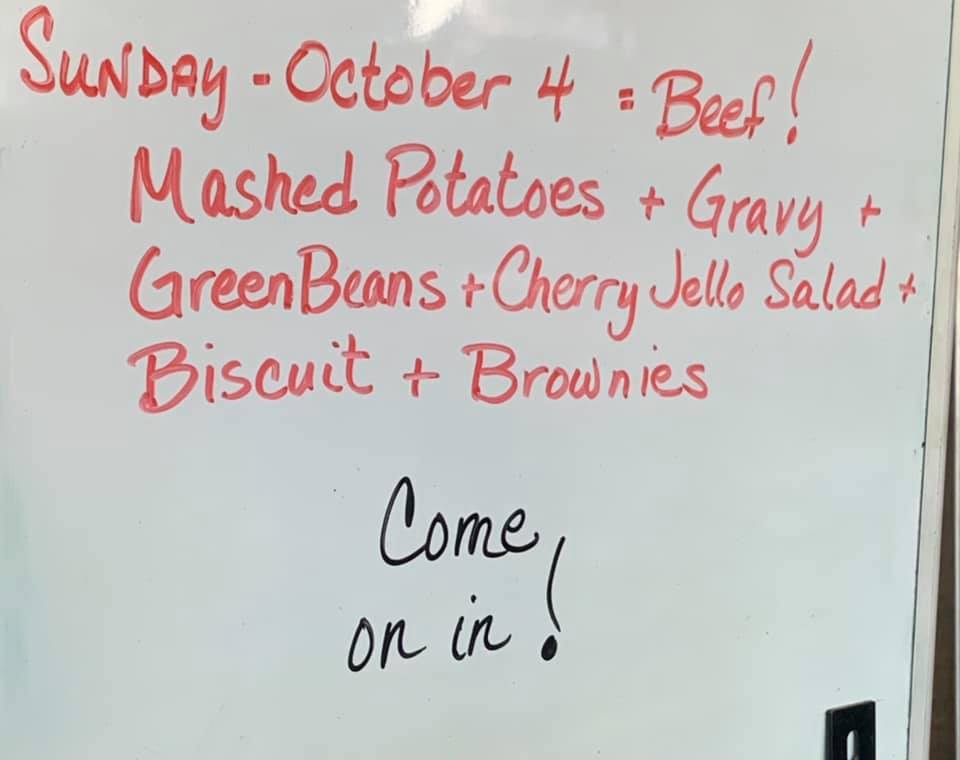 Sunday - October 4 = Beef!
Mashed Potatoes + Gravy +
Green Beans + Cherry Jello Salad +
Biscuit + Brownies
Come
on in!